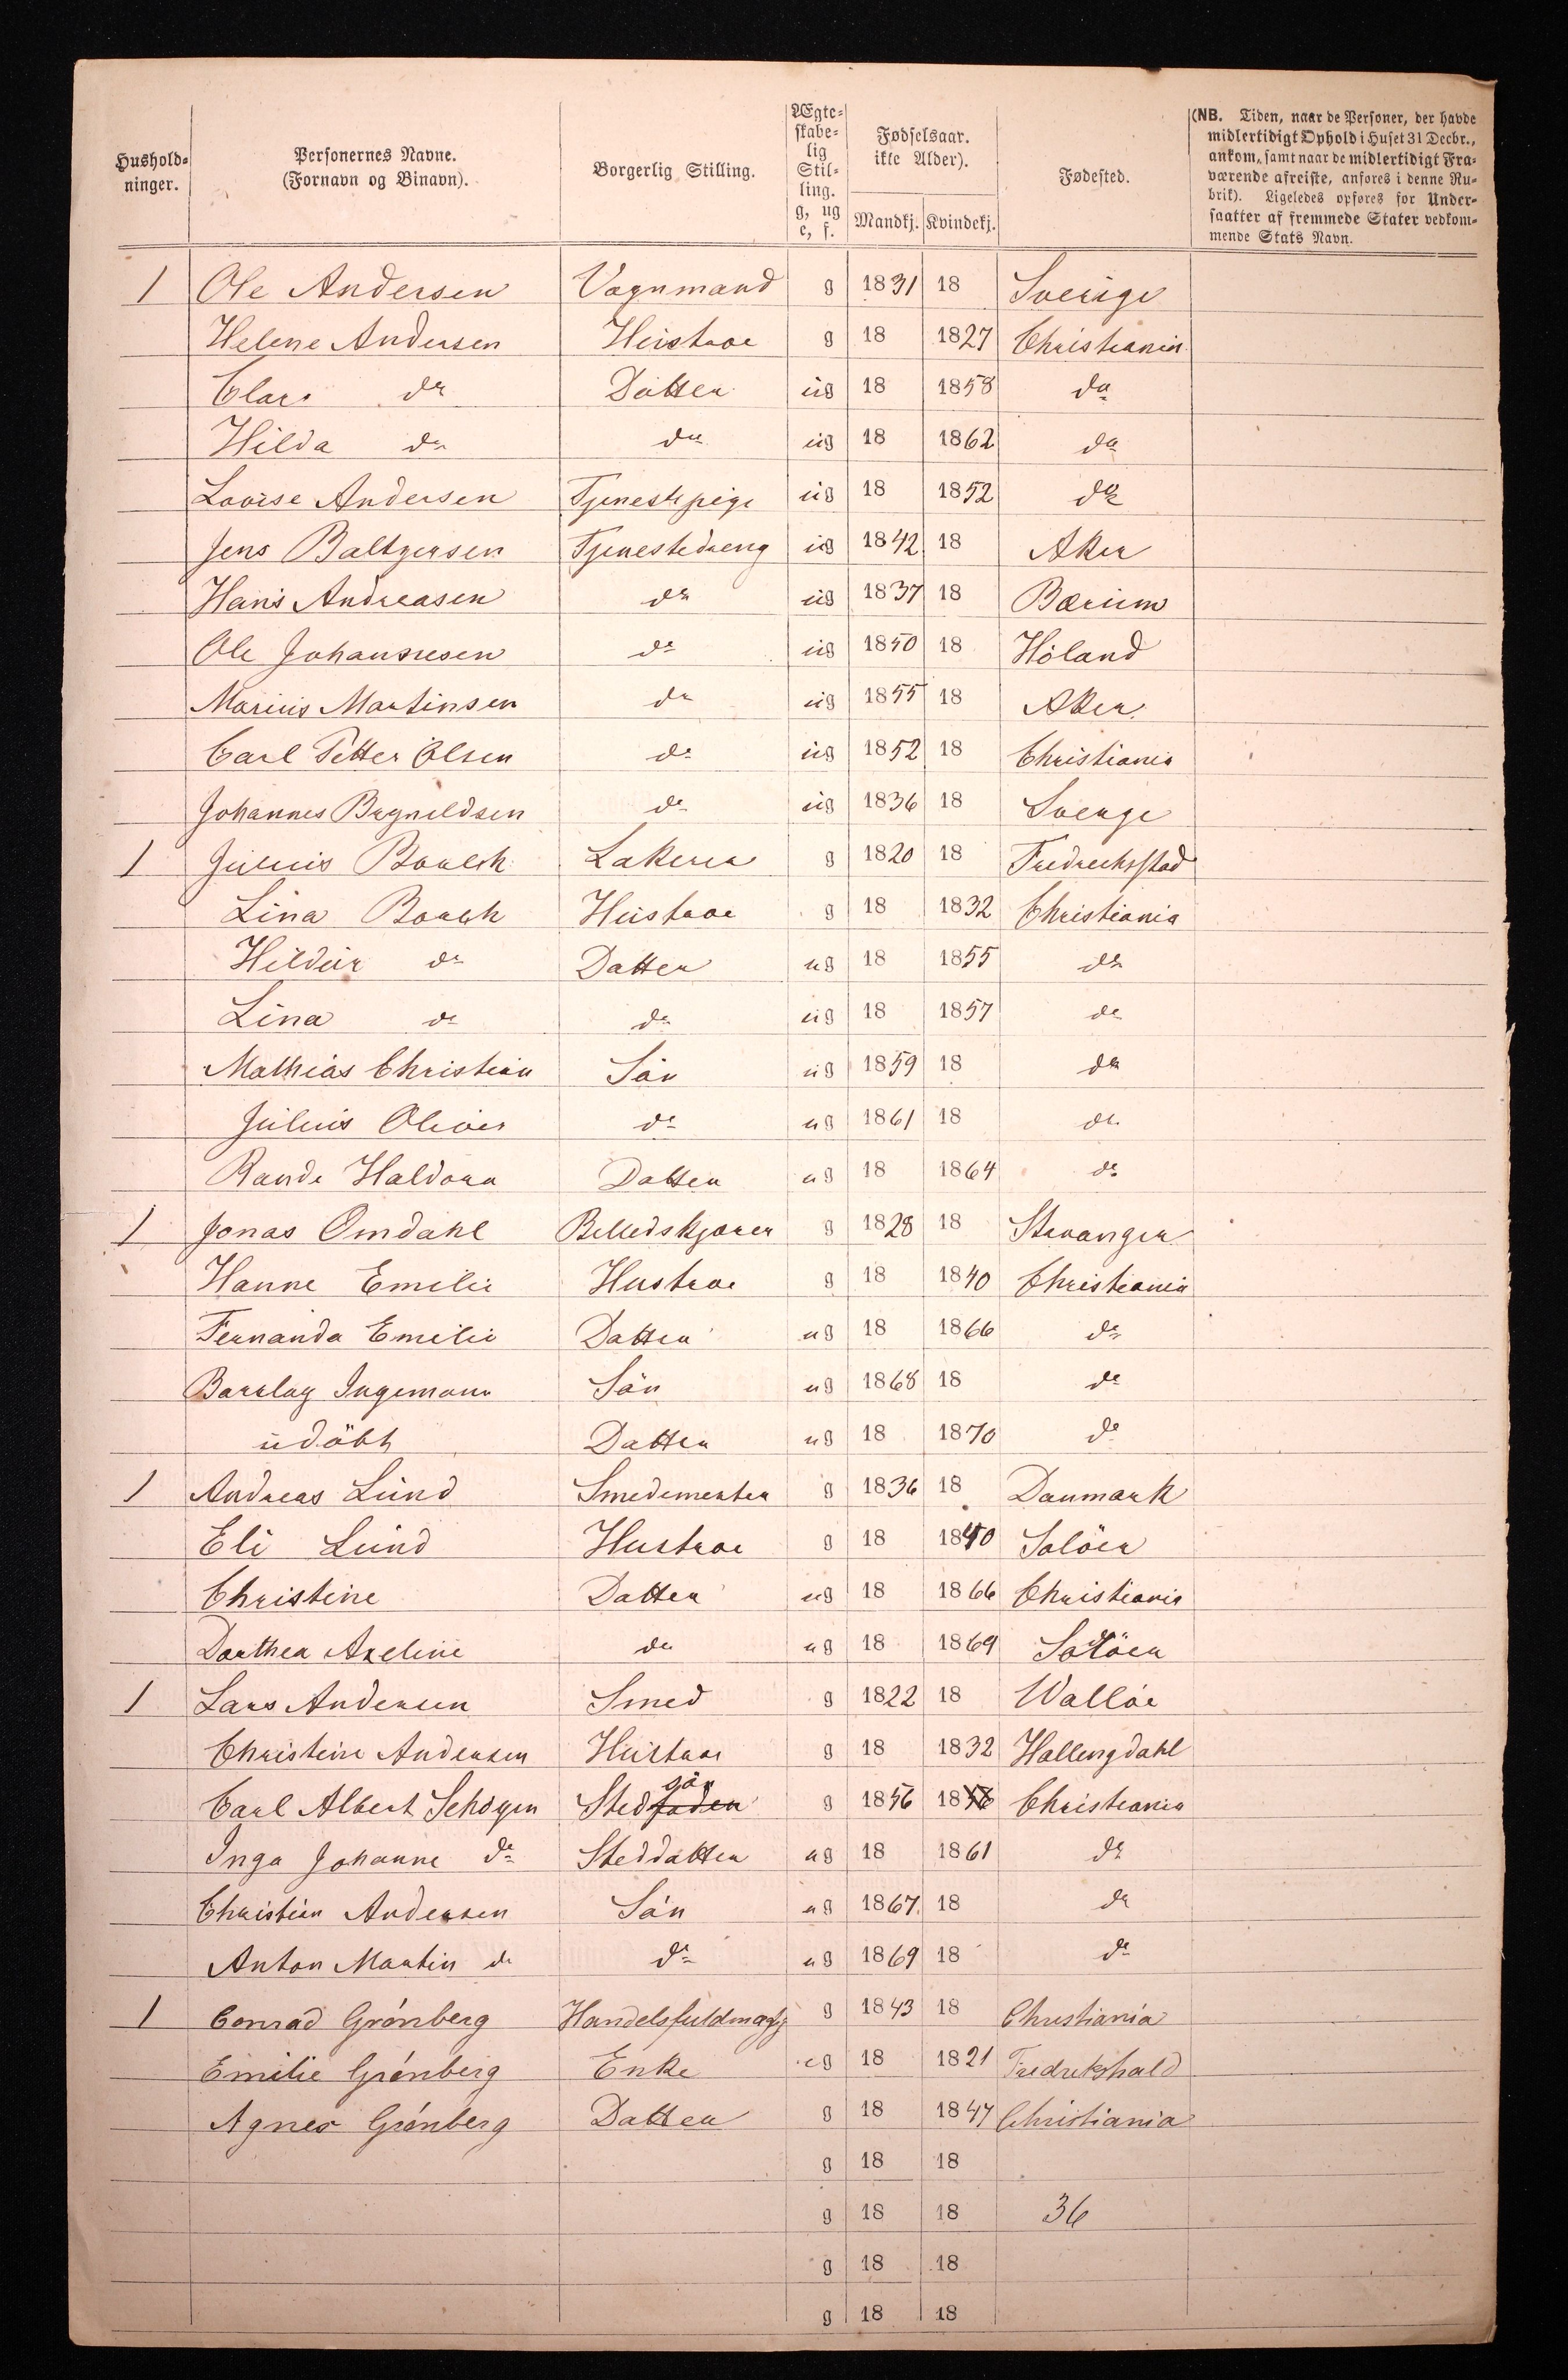 Hushold-
ninger.
Personernes Navne.
(Fornavn og Binavn).
Borgerlig Stilling.
Ægte-
skabe-
lig
Stil-
ling.
g, ug
e, f.
Fødselsaar.
ikke Alder).
Mandkj. Kvindekj.
Fødested.
(NB. Tiden, naar de Personer, der havde
midlertidigt Ophold i Huset 31 Decbr.,
ankom, samt naar de midlertidigt Fra-
værende afreiste, anføres i denne Ru-
brik). Ligeledes opføres for Under-
saatter af fremmede Stater vedkom-
mende Stats Navn.
1 Ole Andersen Vognmand g 1831 18 Sverige
Helene Andersen Hustroe g 18 1827 Christiania
Clara do Datter ug 18 1858 do
Hilda do do ug 18 1862 do
Lovise Andersen Tjenestepige ug 18 1852 do
Jens Baltzersen Tjenestedreng ug 1842 18 Aker
Hans Andreasen do ug 1837 18 Bærum
Ole Johannesen do ug 1850 18 Höland
Marius Martinsen do ug 1855 18 Aker
Carl Petter Olsen do ug 1852 18 Christiania
Johannes Brynildsen do ug 1836 18 Sverige
1 Julius Borch Lakerer g 1820 18 Fredrechsstad
Lina Borch Hustroe g 18 1832 Christiania
Hildur do Datter ug 18 1855 do
Lina do do ug 18 1857 do
Mathias Christian Sön ug 1859 18 do
Julius Oliver do ug 1861 18 do
Randi Haldora Datter ug 18 1864 do
1 Jonas Omdahl Belledskjærer g 1828 18 Stavanger
Hanne Emilie Hustroe g 18 1840 Christiania
Fernanda Emilie Datter ug 18 1866 do
Barclay Ingemann Sön ug 1868 18 do
udöbt Datter ug 18 1870 do
1 Andreas Lund Smedemester g 1836 18 Danmark
Eli Lund Hustroe g 18 1840 Solöer
Christine Datter ug 18 1866 Christiania
Dorthea Axeline do ug 18 1869 Solöer
1 Lars Andersen Smed g 1822 18 Walløe
Christine Andersen Hustroe g 18 1832 Hallengdahl
sön
Carl Albert Schögen Stedfader g 1856 1856 Christiania
Inga Johanne do Steddatter ug 18 1861 do
Christian Andersen Sön ug 1867 18 do
Anton Martin do do ug 1869 18 do
1 Conrad Grónberg Handelsfuldmægtg g 1843 18 Christiania
Emilie Grónberg Enke eg 18 1821 Fredrikshald
Agnes Grónberg Datter g 18 1847 Christiania
g 18 18
g 18 18 36
g 18 18
g 18 18